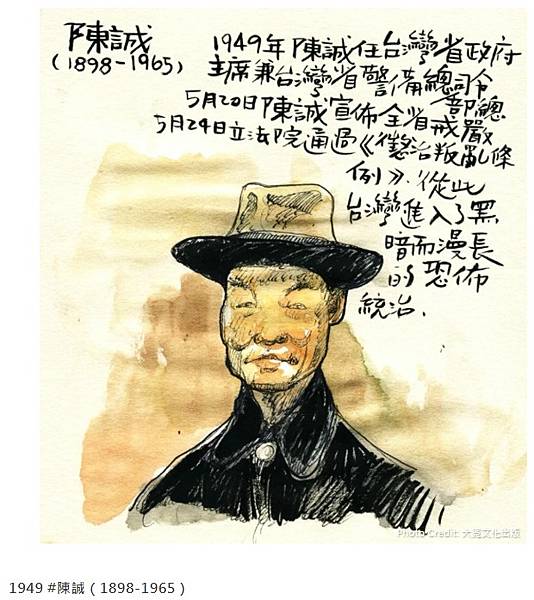 陳誠
(1898-1965)
1949年陳誠任台灣省政府
主席兼台灣省警備總司令
部總
5月20日陳誠宣佈全省戒嚴
5月24日立法院通過《懲治叛亂條
例》.從此
台灣進入了黑
暗而漫長
的恐佈
統治.
Photo Credit: 大塊文化出版
1949 #陳誠 ( 1898-1965 )